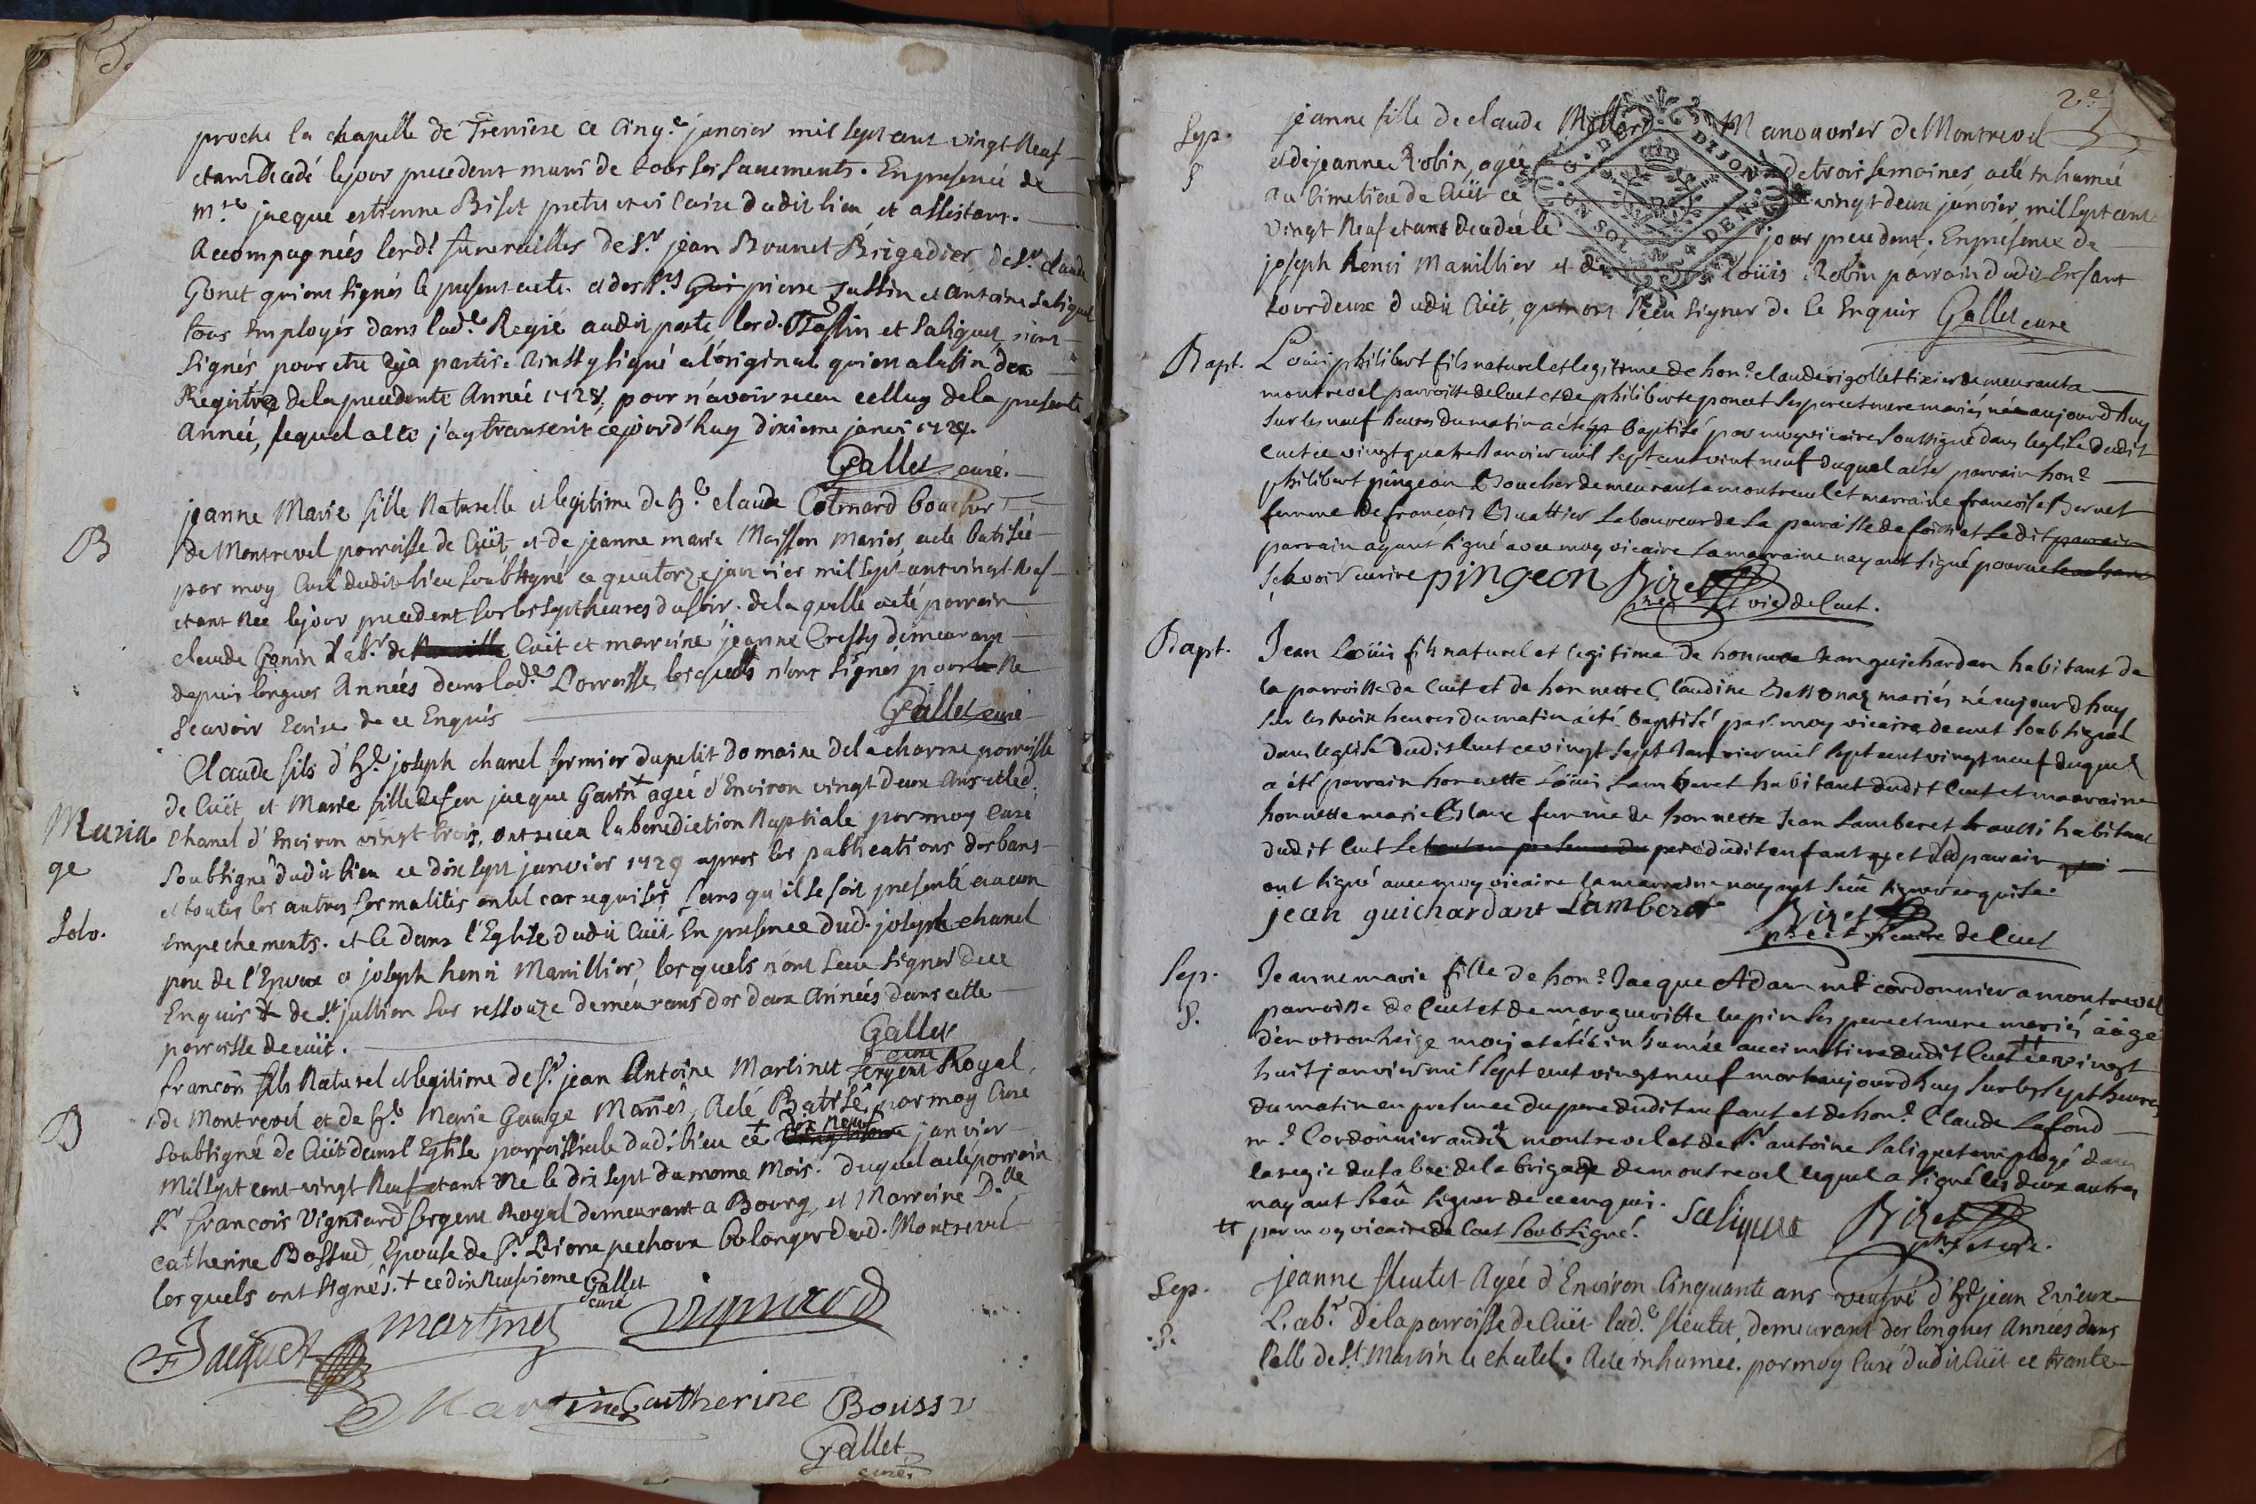 proche la chapelle de ce cinq.e janvier mil sept cent vingt Neuf
etant Decedé le jour precedent muni de tous les sacrements. En presence de
m.re jacque estienne Biset pretre et vicaire dudit lieu et assistant.
Accompagnées lesd. funerailles de Sr jean Brunet Brigadier, de Sr claude
Gonet qui ont signés le present acte. et des Srs pierre et antoine Saliquet
tous Employés dans lad.e Regie audit poste, lesd. et Saliquet n'ont
signés pour etre deja partis. Ainssy signé a l'original qui en a la fin des
Registre de la precedente Année 1728, pour n'avoir receu celluy de la presente
Année, lequel acte j'ay transcrit cejourd'huy dixieme janvi 1729.
Gallet curé.
B
jeanne Marie fille Naturelle et legitime de h.e claude Colmard boucher
de Montrevel parroisse de Cuët et de jeanne marie Maisson mariés, a eté Batisée
par moy Curé dudit lieu soubsigné ce quatorze janvier mil sept cent vingt Neuf
etant Née le jour precedent sur les sept heures du soir. de laquelle a eté parrain
claude Gonin lab.r de Cuët et marraine jeanne Cressy demeurant
depuis longues Années dans lad.e Parroisse, lesquels n'ont signés pour Ne
scavoir Ecrire de ce Enquis
Gallet curé
Maria
ge
Solv.
Claude fils d'h.e joseph chanel fermier du petit domaine de la charme parroisse
de Cuët, et Marie fille de feu jacque Garin + agée d'Environ vingt deux ans et led.
Chanel d'Environ vingt trois, ont receu la benediction Nuptiale par moy Curé
Soubsigné dudit lieu ce dix sept janvier 1729 apres les publications des bans
et toutes les autres formalités en tel cas requises, sans qu'il se soit presenté aucun
Empechements. et ce dans l'Eglise dudit Cuët En presence dud. joseph chanel
pere de l'Epoux et joseph henri Manillier, lesquels n'ont sceu signer de ce
Enquis + de St jullien sur ressouze demeurans des deux Années dans cette
parroisse de cuët.
Gallet
curé
B
francois fils Naturel et legitime de Sr jean Antoine Martinet sergent Royal,
de Montrevel et de h.e Marie Gauge Mariés, A eté Batisé par moy Curé
soubsigné de Cuët dans l'Eglise parroissiale dudit lieu ce + dix neuf janvier
Mil sept cent vingt Neuf etant Né le dix sept du meme Mois. duquel a eté parrain
Sr francois Vigniard sergent Royal demeurant a Bourg, et Marraine D.lle
catherine Bossud Epouse de Sr pechoux bolanger dud. Montrevel
lesquels ont signés. + ce dix Neuvieme Gallet
curé
Jacquet martinet
Catherine Boussu
Gallet
curé
2.e
Sep.
jeanne fille de claude Manouvrier de Montrevel
et de jeanne Robin, agée de trois semaines, a eté Inhumée
au Cimetiere de Cuët ce vingt deux janvier, mil sept cent
vingt Neuf etant decedée le jour precedent. En presence de
joseph henri Manillier et de loüis Robin parrain dudit Enfant
tous deux dudit Cuët, qui n'ont sceu signer de ce Enquis Gallet curé
Bapt.
Louis philibert fils naturel et legitime de hon.e claude rigollet tixier demeurant a
montrevel parroisse de cuet et de philiberte poncet ses pere et mere mariés né aujourd'huy
sur les neuf heures du matin a été Baptisé par moy vicaire soussigné dans leglise dudit
cuet ce vingt quatre Janvier mil sept cent vint neuf duquel a été parrain hon.e
philibert pingeon Boucher demeurant a montrevel et marraine francoise Bernet
femme de francois laboureur de la parroisse de foissiat Ledit parrain
parrain ayant signé avec moy vicaire la marraine nayant signé pour ne
scavoir ecrire pingeon Bizet
pre et vic. de Cuet.
Bapt.
Jean Loüis fils naturel et legitime de honneste Jean guichardan habitant de
la parroisse de Cuet et de honnette Claudine mariés né aujourdhuy
sur les trois heures du matin a été baptisé par moy vicaire de cuet soubsigné
dans leglise dudit Cuet ce vingt sept Janvier mil sept cent vingt neuf duquel
a été parrain honnette Loüis Lamberet habitant dudit Cuet et marraine
honnette marie femme de honnette Jean Lamberet aussi habitant
dudit Cuet Le pere dudit enfant et led parrain
ont signé avec moy vicaire la marraine nayant sceu signer enquise.
jean guichardant Lamberet Bizet
pre et vicaire de Cuet
Sep.
Jeanne marie fille de hon.e Jacque Adam m.e cordonnier a montrevel
parroisse de Cuet et de margueritte lupin ses pere et mere mariés äägé
denviron seize mois a été inhumée au cimetiere dudit Cuet tt ce vingt
huit janvier mil sept cent vingt neuf morte aujourdhuy sur les sept heures
du matin en presence du pere dudit enfant et de hon.e Claude Lafond
m.e Cordonnier audit montrevel et de Sr antoine Saliquet employé dans
la regie du tabac de la brigade de montrevel lequel a signé les deux autres
nayant sceu signer de ce enquis. Saliquet Bizet
tt par moy vicaire de Cuet soubsigné. pre et vic.
Sep.
jeanne fleutet Agée d'Environ Cinquante ans veufve d'h.e jean Evieux
Lab.r De la parroisse de Cuët lad.e fleutet, demeurant des longues Années dans
Celle de St Martin le chatel. A eté inhumee. par moy Curé dudit Cuët ce trente